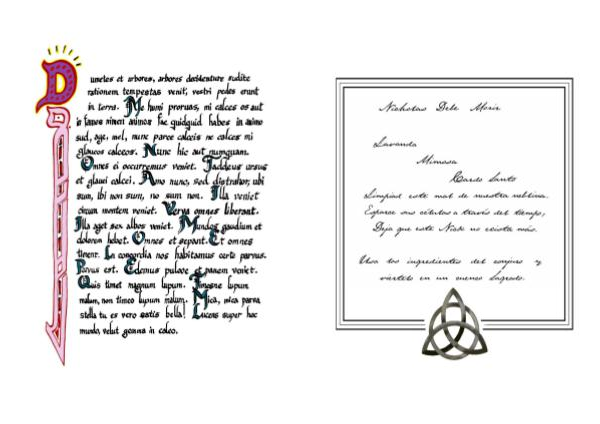 Dumeles et arbores, arbores deciduntur audite
rationem tempestas venit, vestri pedes erunt
in terra. Me humi proruas, mi calces os aut
in fames nimen animos fac quidquid habes in animo
sud, age, mel, nunc parce calceis ne calces mi
glaucos calceos. Nunc hic aut numquam.
Omnes ei occurremus veniet. Taddeus ursus
et glauci calcei. Amo nunc, sed distrahor, ubi
sum, ibi non sum, no sum non. Illa veniet
circum montem veniet. Verva omnes liberant.
Illa aget sex albos veniet. Mundus gaudium et
dolorem habet. Omnes et sepant. Et omnes
timent. In concordia nos habitamus certe parvus.
Parvus est. Edemus pulloc et panem veniet.
Quis timet magnum lupum. Timosne lupum
malum, non timeo lupum malum. Mica, mica parva
stella tu es vero satis bella! Lucens super hoc
mundo, velut gemma in caleo.
Nicholas Dela Morir
Lavanda
Mimosa
Cardo Santo
Limpiad este mal de nuestra neblina.
Esparce sus células a través del tiempo,
Deja que este Niste no exista más.
Usa los ingredientes del conjuro y
viértelos en un cuenco Sagrado.